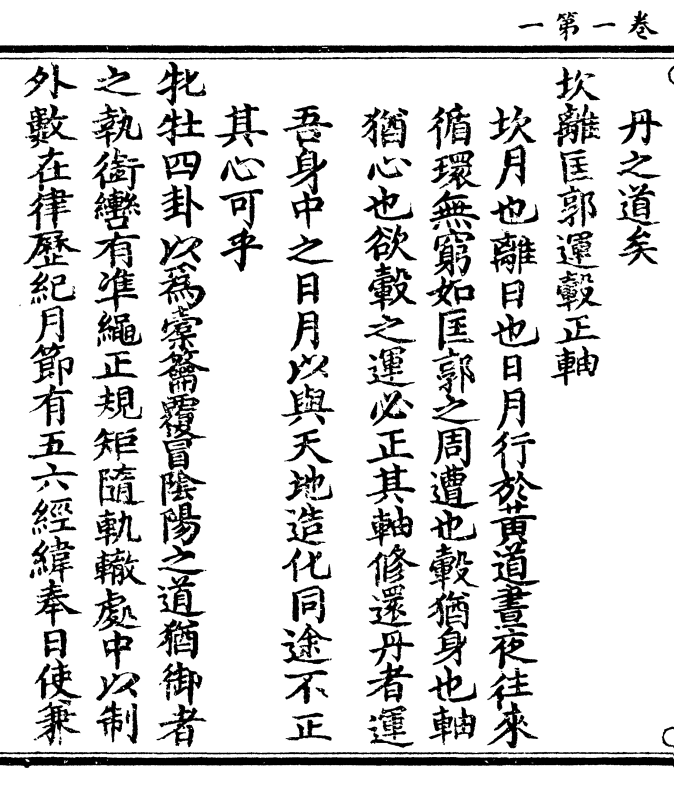 卷一第一
丹之道矣
坎離匡郭運轂正軸
坎月也離日也日月行於黃道晝夜往來
循環無窮如匡郭之周遭也轂猶身也軸
猶心也欲轂之運必正其軸修還丹者運
吾身中之日月以與天地造化同途不正
其心可乎
牝牡四卦以為橐籥覆冒陰陽之道猶御者
之執銜轡有準繩正規矩隨軌轍處中以制
外數在律歷紀月節有五六經緯奉日使兼